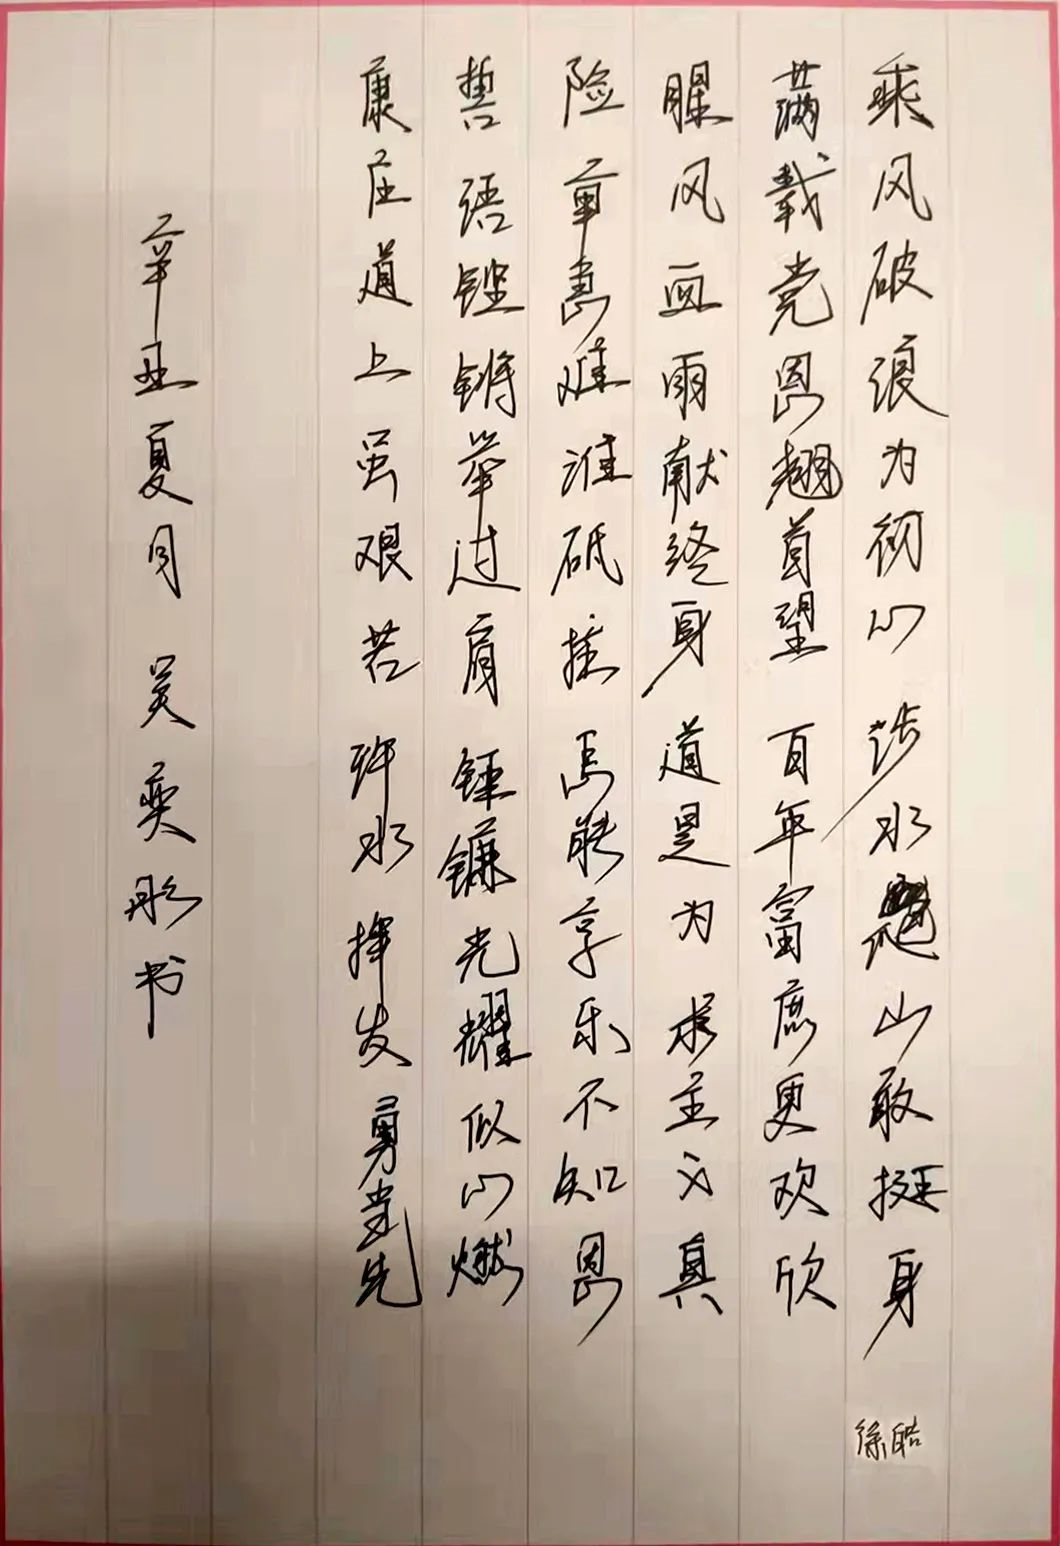 乘风破浪为初心 涉水山敢挺身
满载党恩翘首望 百年富庶更欢欣
腥风血雨献终身 道是为求主义真
险患难谁砥柱 焉能享乐不知恩
誓语铿锵举过肩 锤镰光耀似心燃
康庄道上虽艰苦 许水挥发勇当先
辛丑夏月 吴奕彤书
徐皓